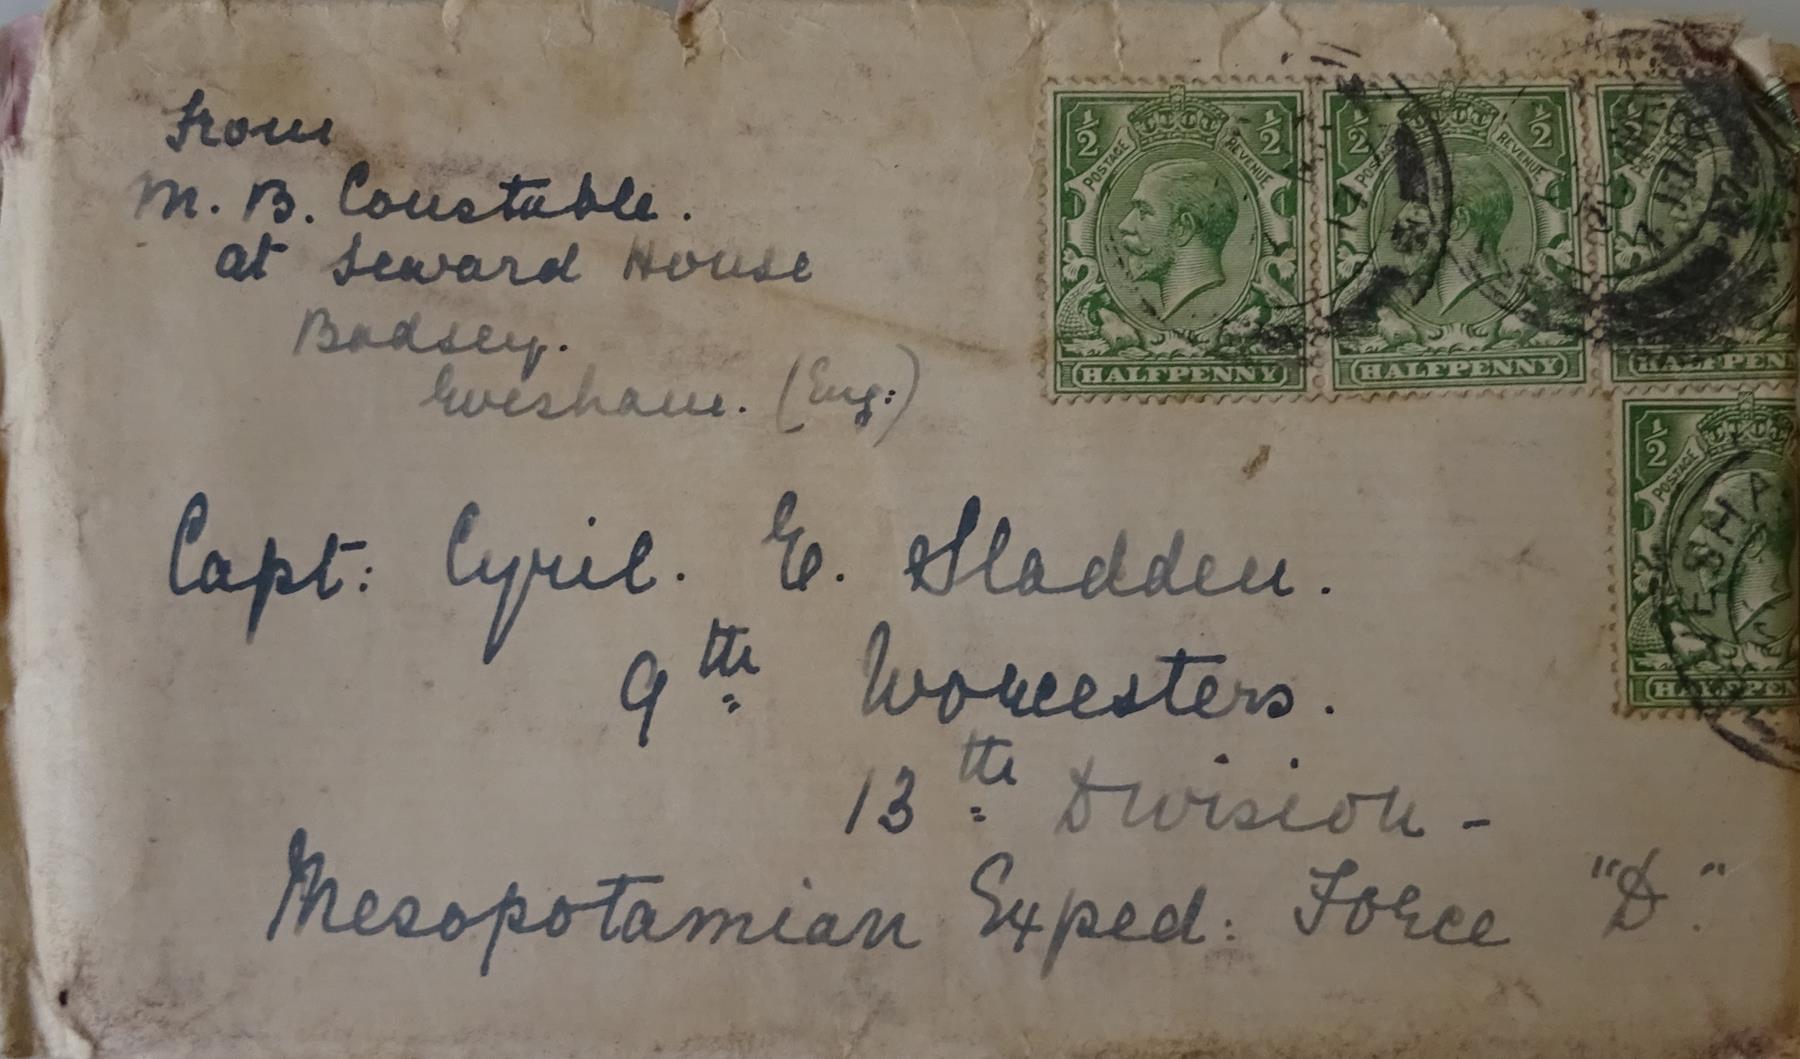 From
M. B. Constable.
at Seward House
Badsey.
Evesham. (Eng:)
½ ½
POSTAGE REVENUE
HALFPENNY
½ ½
POSTAGE REVENUE
HALFPENNY
½
HALFPENN
½
POSTAGE
HALFPEN
ESHA
17
Capt: Cyril. E. Sladden.
9th Worcesters.
13th Division -
Mesopotamian Exped: Force "D."